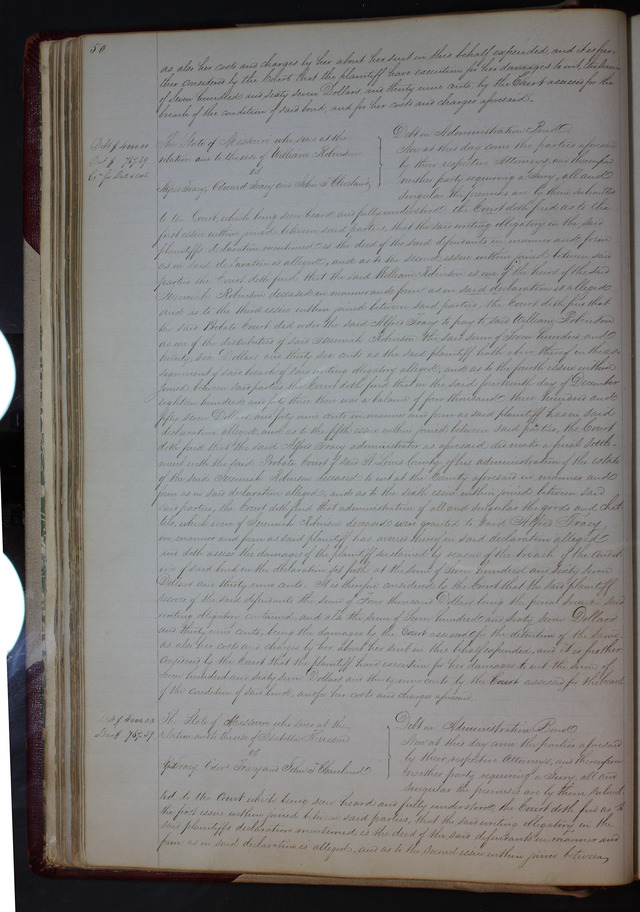 50
as also her costs and charges by her about her suit in this behalf expended, and it is fur-
ther considered by the Court that the plaintiff have execution for her damages to wit, the sum
of seven hundred and sixty seven Dollars and thirty nine cents, by the Court assessed for the
breach of the condition of said bond, and for her costs and charges aforesaid.
Debt $4000.00
The State of Missouri who sues at the
relation and to the use of William Robinson
vs
Alfred Tracy, Edward Tracy and John F.
Debt on Administration Bond
Now at this day come the parties aforesaid
by their respective Attorneys, and thereupon
neither party requiring a Jury, all and
singular the premises are by them submitted
to the Court, which being seen heard and fully understood, the Court doth find as to the
first issue within joined between said parties, that the said writing obligatory in the said
plaintiffs declaration mentioned is the deed of the said defendants in manner and form
as in said declaration is alleged, and as to the second issue within joined between said
parties the Court doth find that the said William Robinson is one of the heirs of the said
Jeremiah Robinson deceased in manner and form as in said declaration is alleged
and as to the third issue within joined between said parties, the Court doth find that
the said Probate Court did order the said Alfred Tracy to pay to said William Robinson
as one of the distributees of said Jeremiah Robinson the said sum of Seven hundred and
Dollars and thirty six cents as the said plaintiff hath above thereof in the as-
signment of said breach of said writing obligatory alleged, and as to the fourth issue within
joined between said parties the Court doth find that on the said fourteenth day of December
eighteen hundred and forty three there was a balance of five thousand three hundred and
fifty seven Dollars and forty nine cents in manner and form as said plaintiff has in said
declaration alleged, and as to the fifth issue within joined between said parties, the Court
doth find that the said Alfred Tracy administrator as aforesaid did make a final settle-
ment with the said Probate Court of said St Louis County of his administration of the estate
of the said Jeremiah Robinson deceased to wit at the County aforesaid in manner and
form as in said declaration alleged, and as to the sixth issue within joined between said
parties, the Court doth find that administration of all and singular the goods and chat-
tels, which were of Jeremiah Robinson deceased were granted to said Alfred Tracy
in manner and form as said plaintiff has averred thereof in said declaration alleged
and doth assess the damages of the plaintiff sustained by reason of the breach of the condit-
ion of said bond in the declaration set forth at the sum of Seven hundred and sixty seven
Dollars and thirty nine cents. It is therefore considered by the Court that the said plaintiff
recover of the said defendants the sum of Four thousand Dollars being the penal sum in said
writing obligatory contained, and also the sum of Seven hundred and sixty seven Dollars
and thirty nine cents, being the damages by the Court assessed for the detention of the same
as also her costs and charges by her about her suit in this behalf expended, and it is further
considered by the Court that the plaintiff have execution for her damages to wit the sum of
Seven hundred and sixty seven Dollars and thirty nine cents by the Court assessed for the breach
of the condition of said bond, and for her costs and charges aforesaid.
Debt $4000.00
The State of Missouri who sues at the
relation and to the use of Isabella
vs
Tracy, Edw. Tracy and John F.
Debt on Administration Bond
Now at this day come the parties aforesaid
by their respective Attorneys, and thereupon
neither party requiring a Jury, all and
singular the premises are by them submit-
ted to the Court which being seen heard and fully understood, the Court doth find as to
the first issue within joined between said parties, that the said writing obligatory in the
said plaintiffs declaration mentioned is the deed of the said defendants in manner and
form as in said declaration is alleged, and as to the second issue within joined between